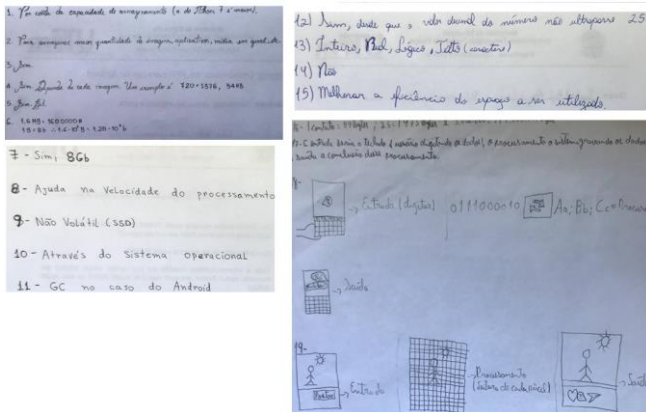 1. Por conta da capacidade de armazenamento (a do Iphone 7 é maior).
2. Para armazenar maior quantidade de imagem, aplicativo, mídia em geral, etc.
3. Sim.
4. Sim. Depende de cada imagem. Um exemplo é 720×
5. Sim.
6. 1.6 MB
7 - Sim, 8Gb
8 - Ajuda na velocidade do processamento
9 - Não Volátil (SSD)
10 - Através do Sistema operacional
11 - GC no caso do Android
12) Sim, desde que o valor decimal do número não ultrapasse 25
13) Inteiro, Real, Lógico, Texto (caractere)
14) Não
15) Melhorar a eficiência do espaço a ser utilizado.
16- 1 contato
17- Entrada seria o teclado e usuário digitando os dados, o processamento o sistema gravando os dados
saída a conclusão desse processamento.
→ Entrada (digitar)
Aa; Bb; Cc
→ Saída
19-
→ Entrada
→ Processamento
(Leitura de cada pixel)
→ Saída